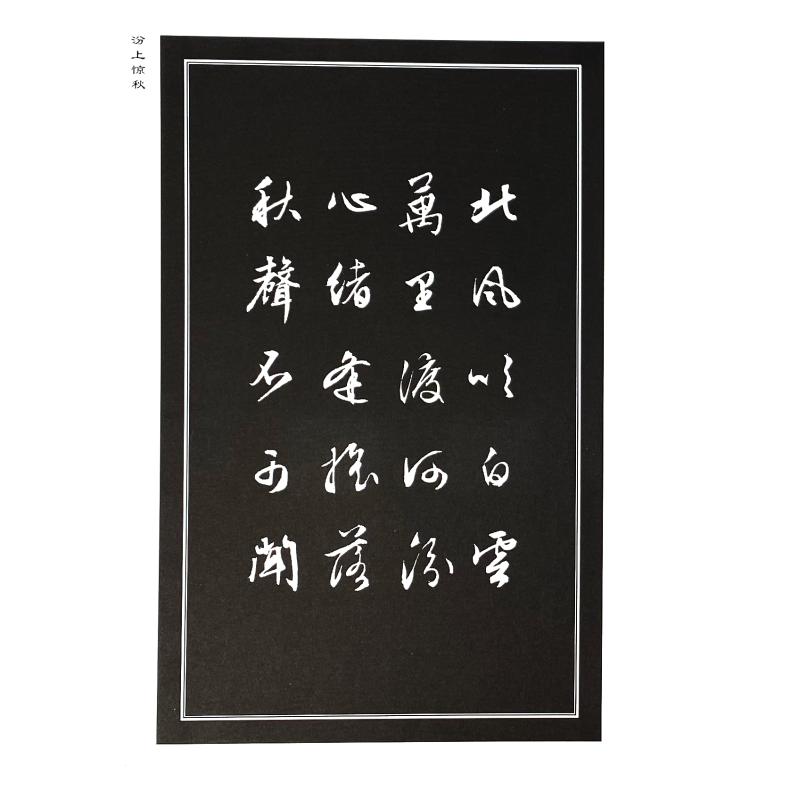 汾上惊秋
北风吹白雲
萬里渡河汾
心绪逢摇落
秋聲不可闻